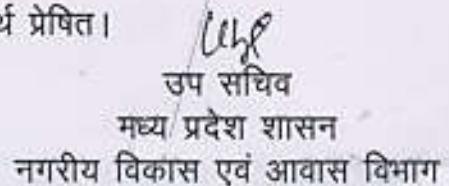 र्थ प्रेषित।
उप सचिव
मध्य प्रदेश शासन
नगरीय विकास एवं आवास विभाग